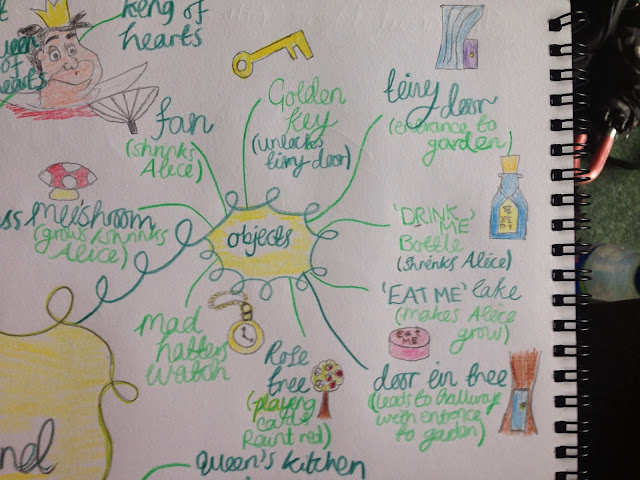 king of
hearts
queen
of
hearts
fan
(shrinks
Alice)
Golden
Key
(unlocks
tiny door)
tiny door
(entrance to
garden)
mushroom
(grows/shrinks
Alice)
objects
'DRINK
ME'
Bottle
(shrinks Alice)
'EAT ME' cake
(makes Alice
grow)
EAT
ME
Mad
hatters
watch
Rose
tree
(playing
cards
paint red)
door in tree
(leads to hallway
with entrance
to garden)
queen's kitchen